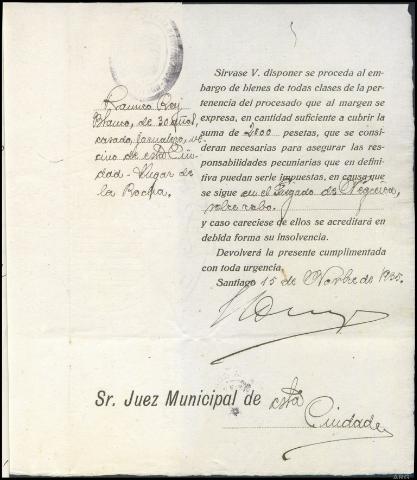 Ramiro Rey
Blanco, de 30 años,
casado, jornalero, ve-
cino de esta Ciu-
dad - Lugar de
la Rocha.
Sírvase V. disponer se proceda al em-
bargo de bienes de todas clases de la per-
tenencia del procesado que al margen se
expresa, en cantidad suficiente a cubrir la
suma de 2800 pesetas, que se consi-
deran necesarias para asegurar las res-
ponsabilidades pecuniarias que en defini-
tiva puedan serle impuestas, en causa que
se sigue en el Juzgado de Negreira,
sobre robo.
y caso careciese de ellos se acreditará en
debida forma su insolvencia.
Devolverá la presente cumplimentada
con toda urgencia.
Santiago 15 de Novbre de 1935.
Sr. Juez Municipal de esta
Ciudad